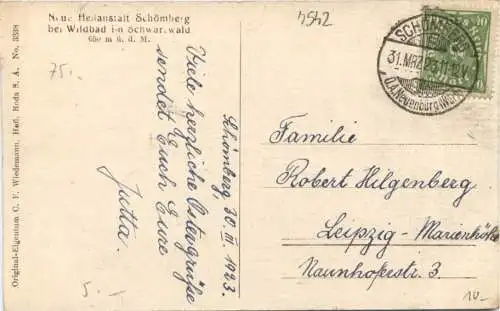 Neue Heilanstalt Schömberg
bei Wildbad i~n Schwarzwald
650 m ü. d. M.
4542
75.-
Schömberg, 30. III 1923.
Viele herzliche Ostergrüße
sendet Euch Eure
Jutta.
5.-
Original-Eigentum C. F. Wiedemann, Hofl. Roda S. A. No. 3598
SCHÖMBERG
31.MRZ.23.11-12V.
O.A.Neuenbürg (Württ)
Familie
Robert Hilgenberg
Leipzig - Marienhöhe
Naunhofestr. 3.
10.-